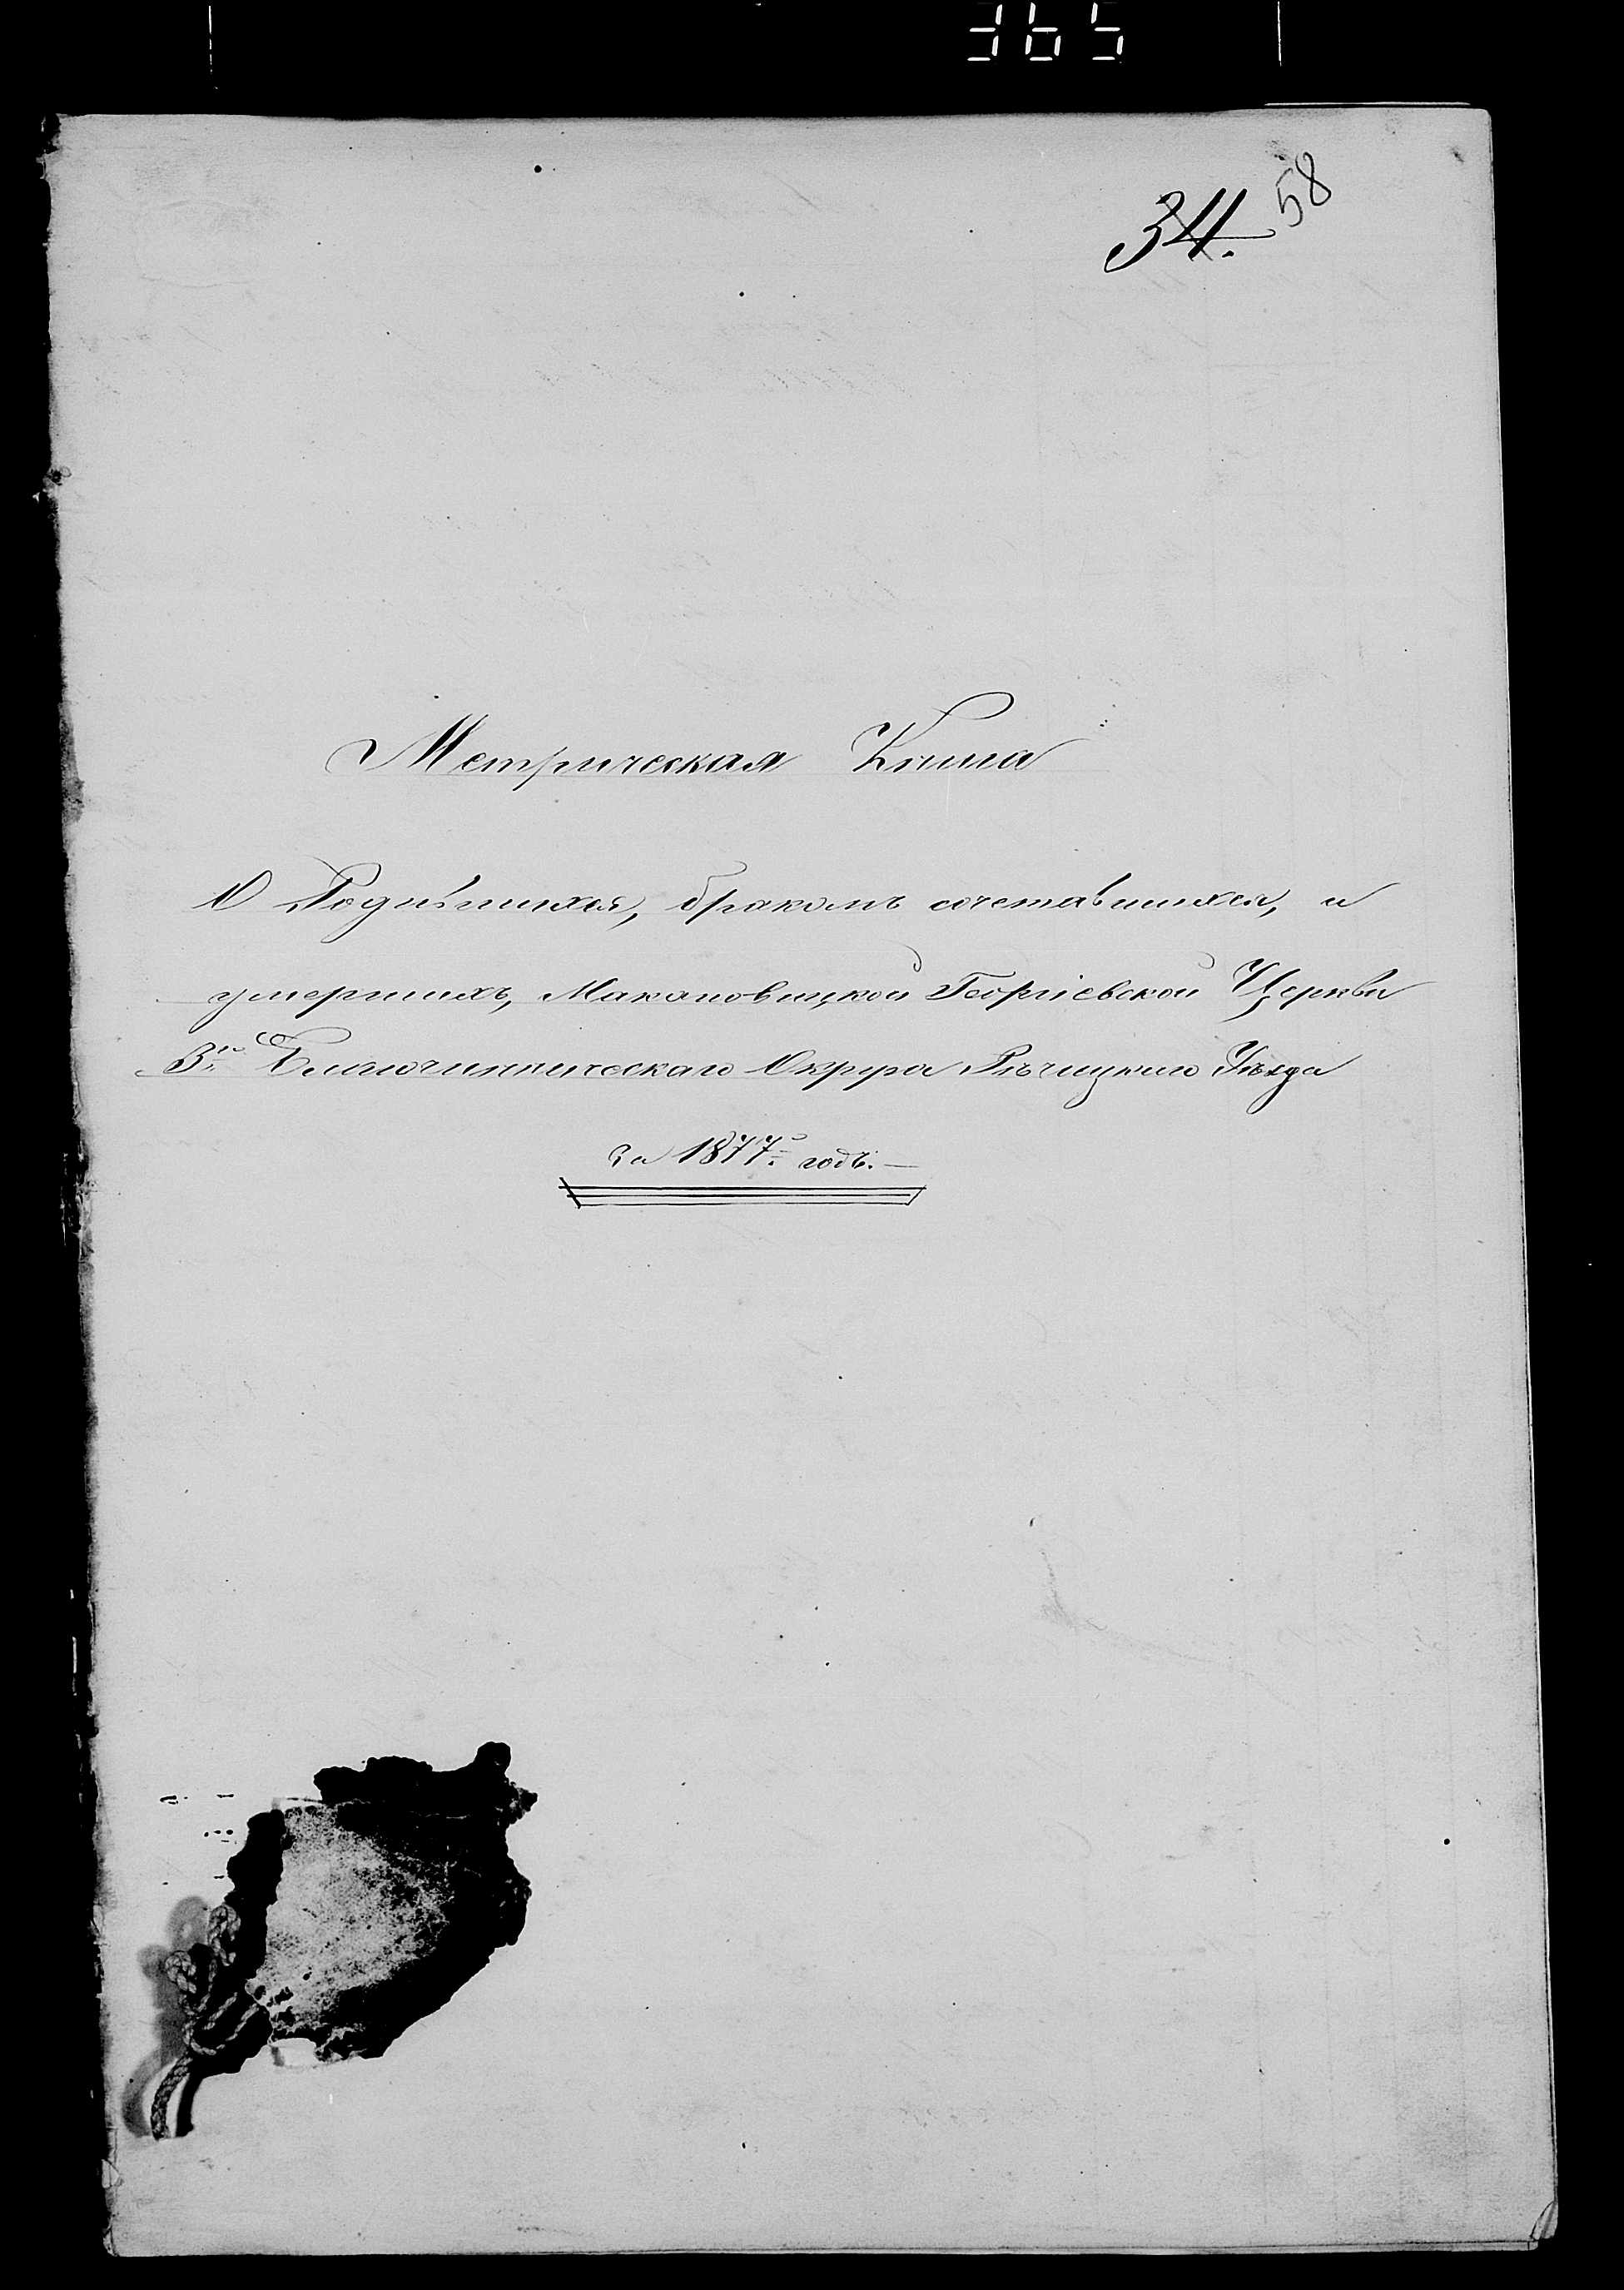 365
34. 58
Метрическая Книга
О Родившихся, бракомъ сочетавшихся, и
умершихъ, Макановицкой Георгіевской Церкви
3го Благочинническаго Округа Рѣчицкаго Уѣзда
за 1877й годъ.